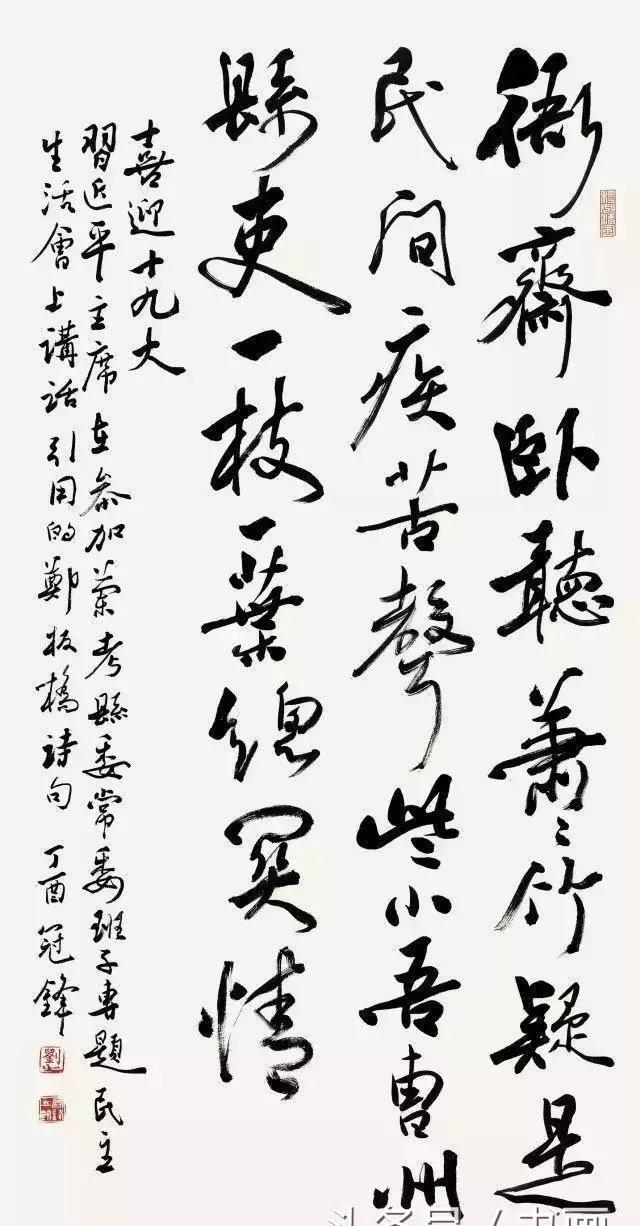 衙齋卧聽蕭〻竹疑是
民間疾苦聲些小吾曹州
縣吏一枝一葉總關情
喜迎十九大
習近平主席在參加蘭考縣委常委班子專題民主
生活會上講話引用的鄭板橋詩句 丁酉冠鋒
头条号/书画